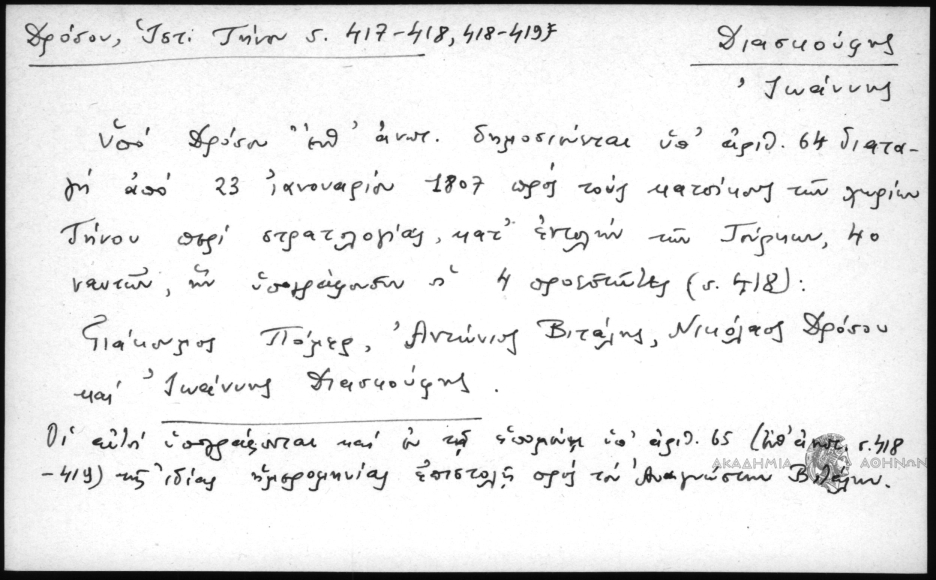 Δρόσου, Ἱστ. Τήνου σ. 417-418, 418-419
Διασκούφης
Ἰωάννης
Ὑπό Δρόσου ἔνθ' ἀνωτ. δημοσιεύεται ὑπ' ἀριθ. 64 διατα-
γή ἀπό 23 Ἰανουαρίου 1807 πρός τούς κατοίκους τῶν χωρίων
Τήνου περί στρατολογίας, κατ' ἐντολήν τῶν Τούρκων, 40
ναυτῶν, ἥν ὑπογράφουσιν οἱ 4 προεστῶτες (σ. 418):
Γιάκουμος Πάμερ, Ἀντώνιος Βιτάλης, Νικόλαος Δρόσου
καί Ἰωάννης Διασκούφης.
Οἱ αὐτοί ὑπογράφονται καί ἐν τῇ ἑπομένῃ ὑπ' ἀριθ. 65 (ἔνθ' ἀνωτ. σ. 418
-419) τῆς ἰδίας ἡμερομηνίας ἐπιστολῇ πρός τόν Ἀναγνώστην Βιτάλην.
ΑΚΑΔΗΜΙΑ ΑΘΗΝΩΝ